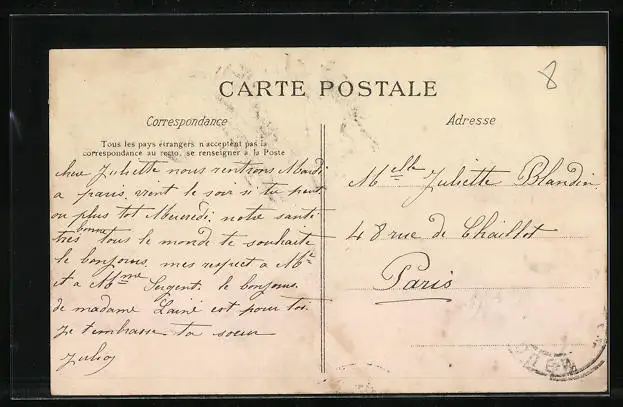 8
CARTE POSTALE
Correspondance
Adresse
Tous les pays étrangers n'acceptent pas la
correspondance au recto, se renseigner à la Poste
cher Juliette nous rentrons Mardi
a paris vient le soir si tu peut
ou plus tot Mercredi notre santé
très bonne tous le monde te souhaite
le bonjours mes respect a Mr
et a Mme Sergent, le bonjours
de madame Lainé est pour toi
Je t'embrasse ta soeur
Melle Juliette Blandin
48 rue de Chaillot
Paris